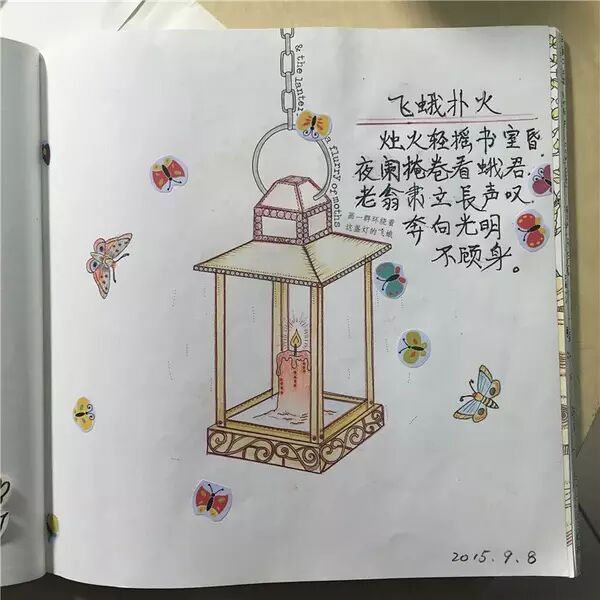 & the lanter
a flurry of moths
画一群环绕着
这盏灯的飞蛾
飞蛾扑火
烛火轻摇书室昏.
夜阑掩卷看蛾君.
老翁肃立長声叹.
奔向光明
不顾身。
2015.9.8